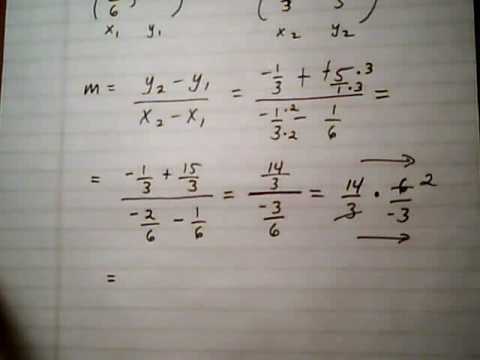 ( /6 , ) ( /3 )
x₁ y₁ x₂ y₂
m = (y₂ - y₁)/(x₂ - x₁) = (-1/3 + +5·3/1·3)/(-1·2/3·2 - 1/6) =
= (-1/3 + 15/3)/(-2/6 - 1/6) = (14/3)/(-3/6) = 14/3 · 6/-3 2
=